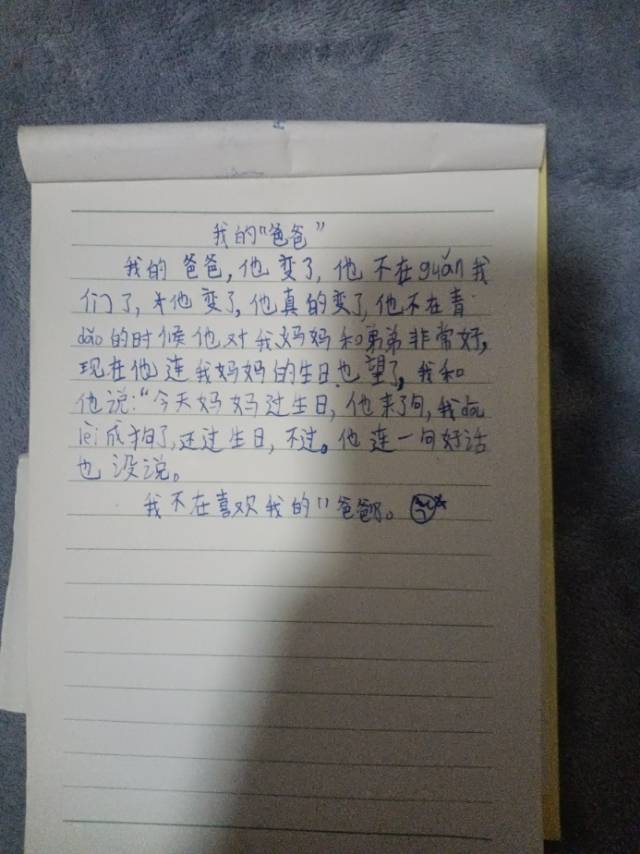 我的“爸爸”
我的爸爸,他变了,他不在guǎn我
们了,他变了,他真的变了,他不在青
dǎo的时候他对我妈妈和弟弟非常好,
现在他连我妈妈的生日也望了,我和
他说:“今天妈妈过生日,他来了句,我dōu
lèi成狗了,还过生日,不过。他连一句好话
也没说。
我不在喜欢我的"爸爸了。